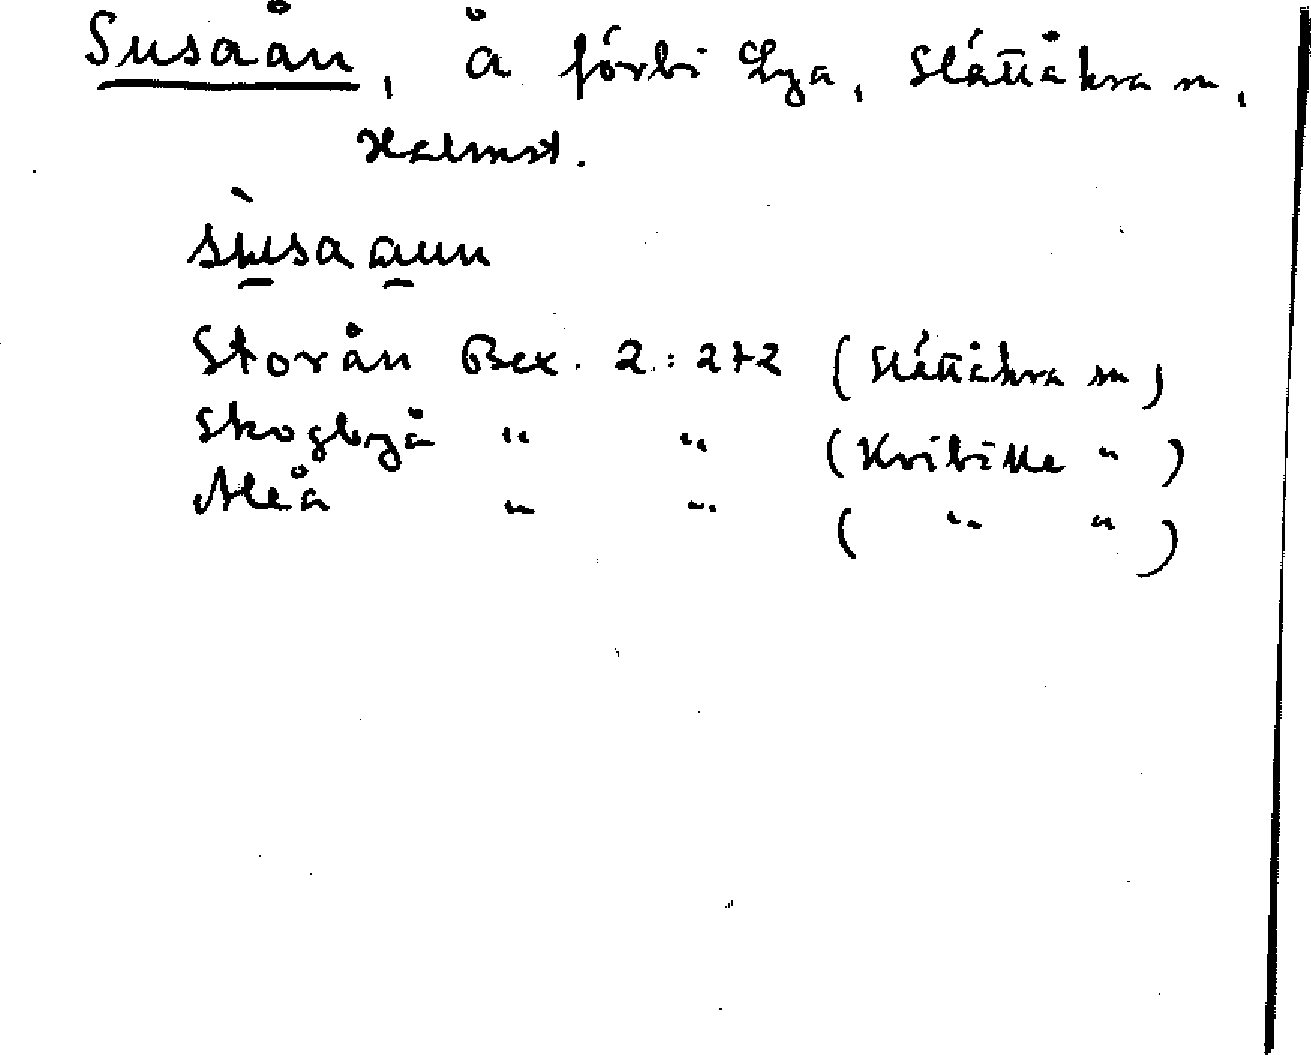 Susaån, å förbi Lya, Slättåkra sn,
Halmst.
sùsa aun
Storån Bex. 2:272 (Slättåkra sn)
Skogbyå " " (Kvibille " )
Aleå " " ( " " )